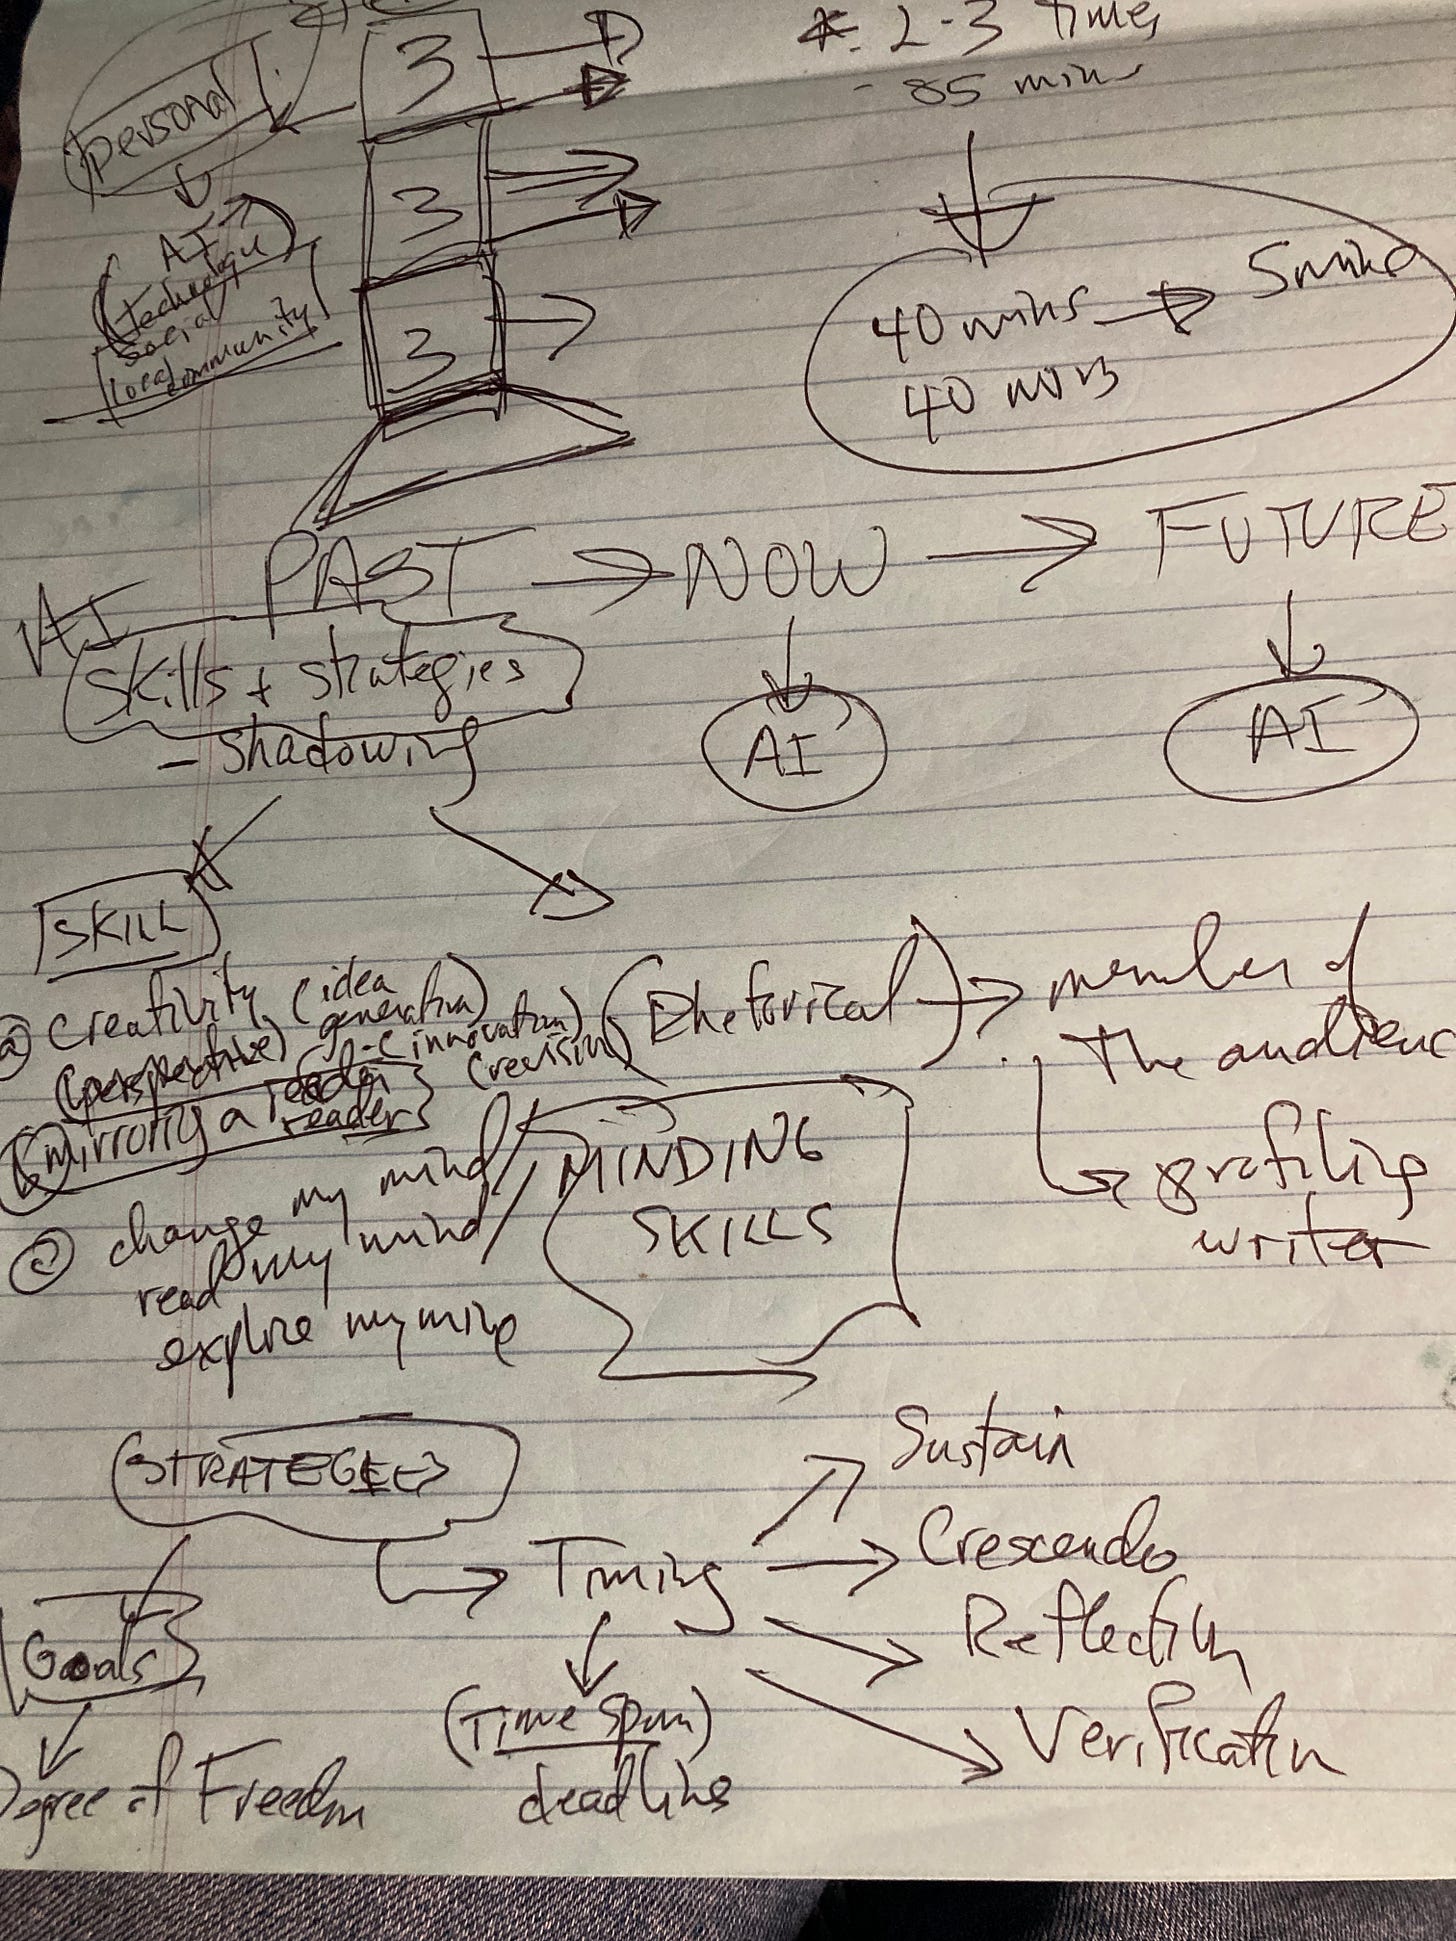 2-3 times
- 85 mins
3
personal
3
AI
technologie
social
local community
3
40 mins → Smike
40 mins
PAST → NOW → FUTURE
AI
skills + strategies
- shadowing
AI
AI
SKILL
a creativity (idea generation)
(perspective) (innovation)
(revision)
(Rhetorical) → member of
the audienc
b mirroring a reader
reader
profiling
writer
MINDING
SKILLS
c change my mind
read my mind
explore my mind
STRATEGIES
Timing
Sustain
Crescendo
Reflection
Verification
Goals
(Time span)
deadlines
Degree of Freedom